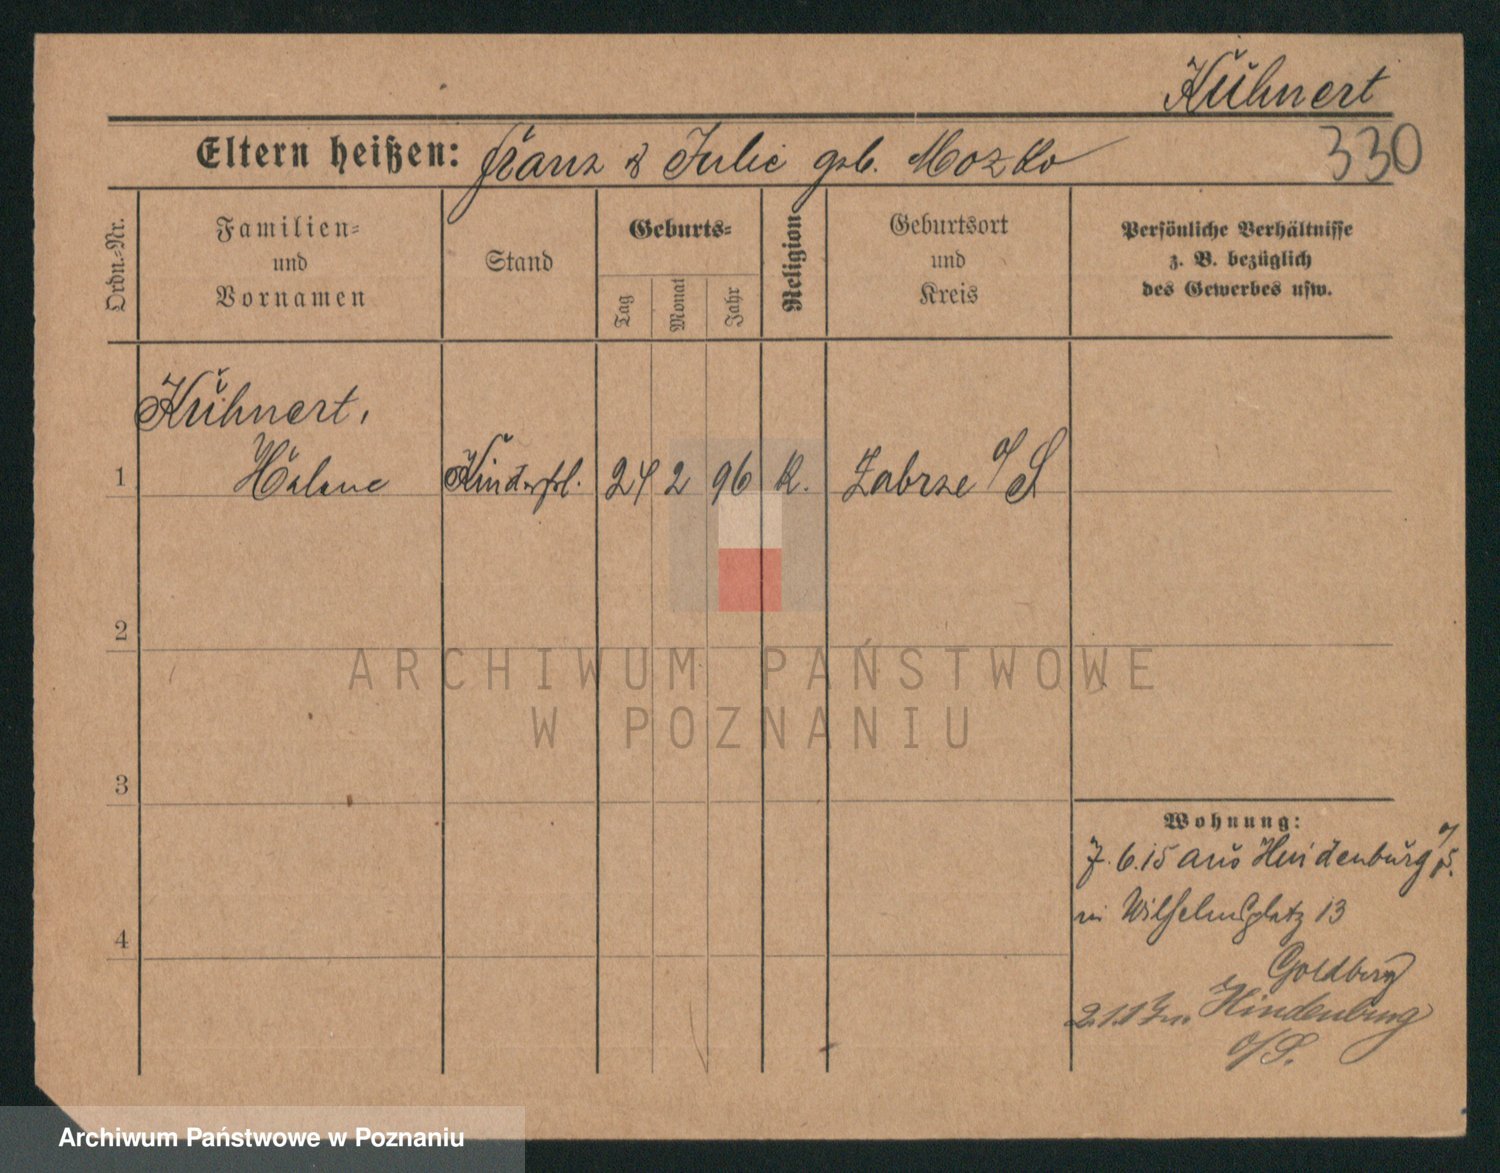 Kühnert
Eltern heißen: Franz & Julie geb. Mozko
330
Ordn.-Nr.
Familien-
und
Vornamen
Stand
Geburts-
Tag
Monat
Jahr
Religion
Geburtsort
und
Kreis
Persönliche Verhältnisse
z. B. bezüglich
des Gewerbes usw.
Kühnert,
1 Helene Kinderfrl. 24 2 96 K. Zabrze O/S
2
ARCHIWUM PAŃSTWOWE
W POZNANIU
3
Wohnung:
7. 6. 15 aus Hindenburg O/S.
Wilhelmsplatz 13
4
Goldberg
Hindenburg
O/S.
Archiwum Państwowe w Poznaniu